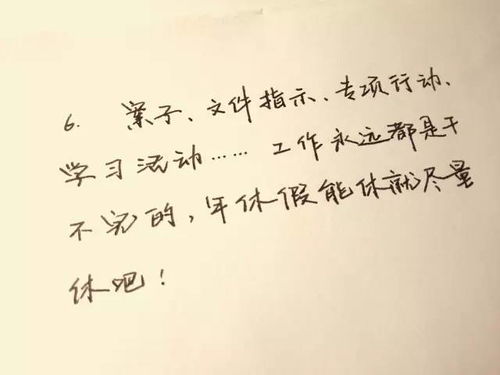 6. 案子、文件指示、专项行动、
学习活动……工作永远都是干
不完的，年休假能休就尽量
休吧！